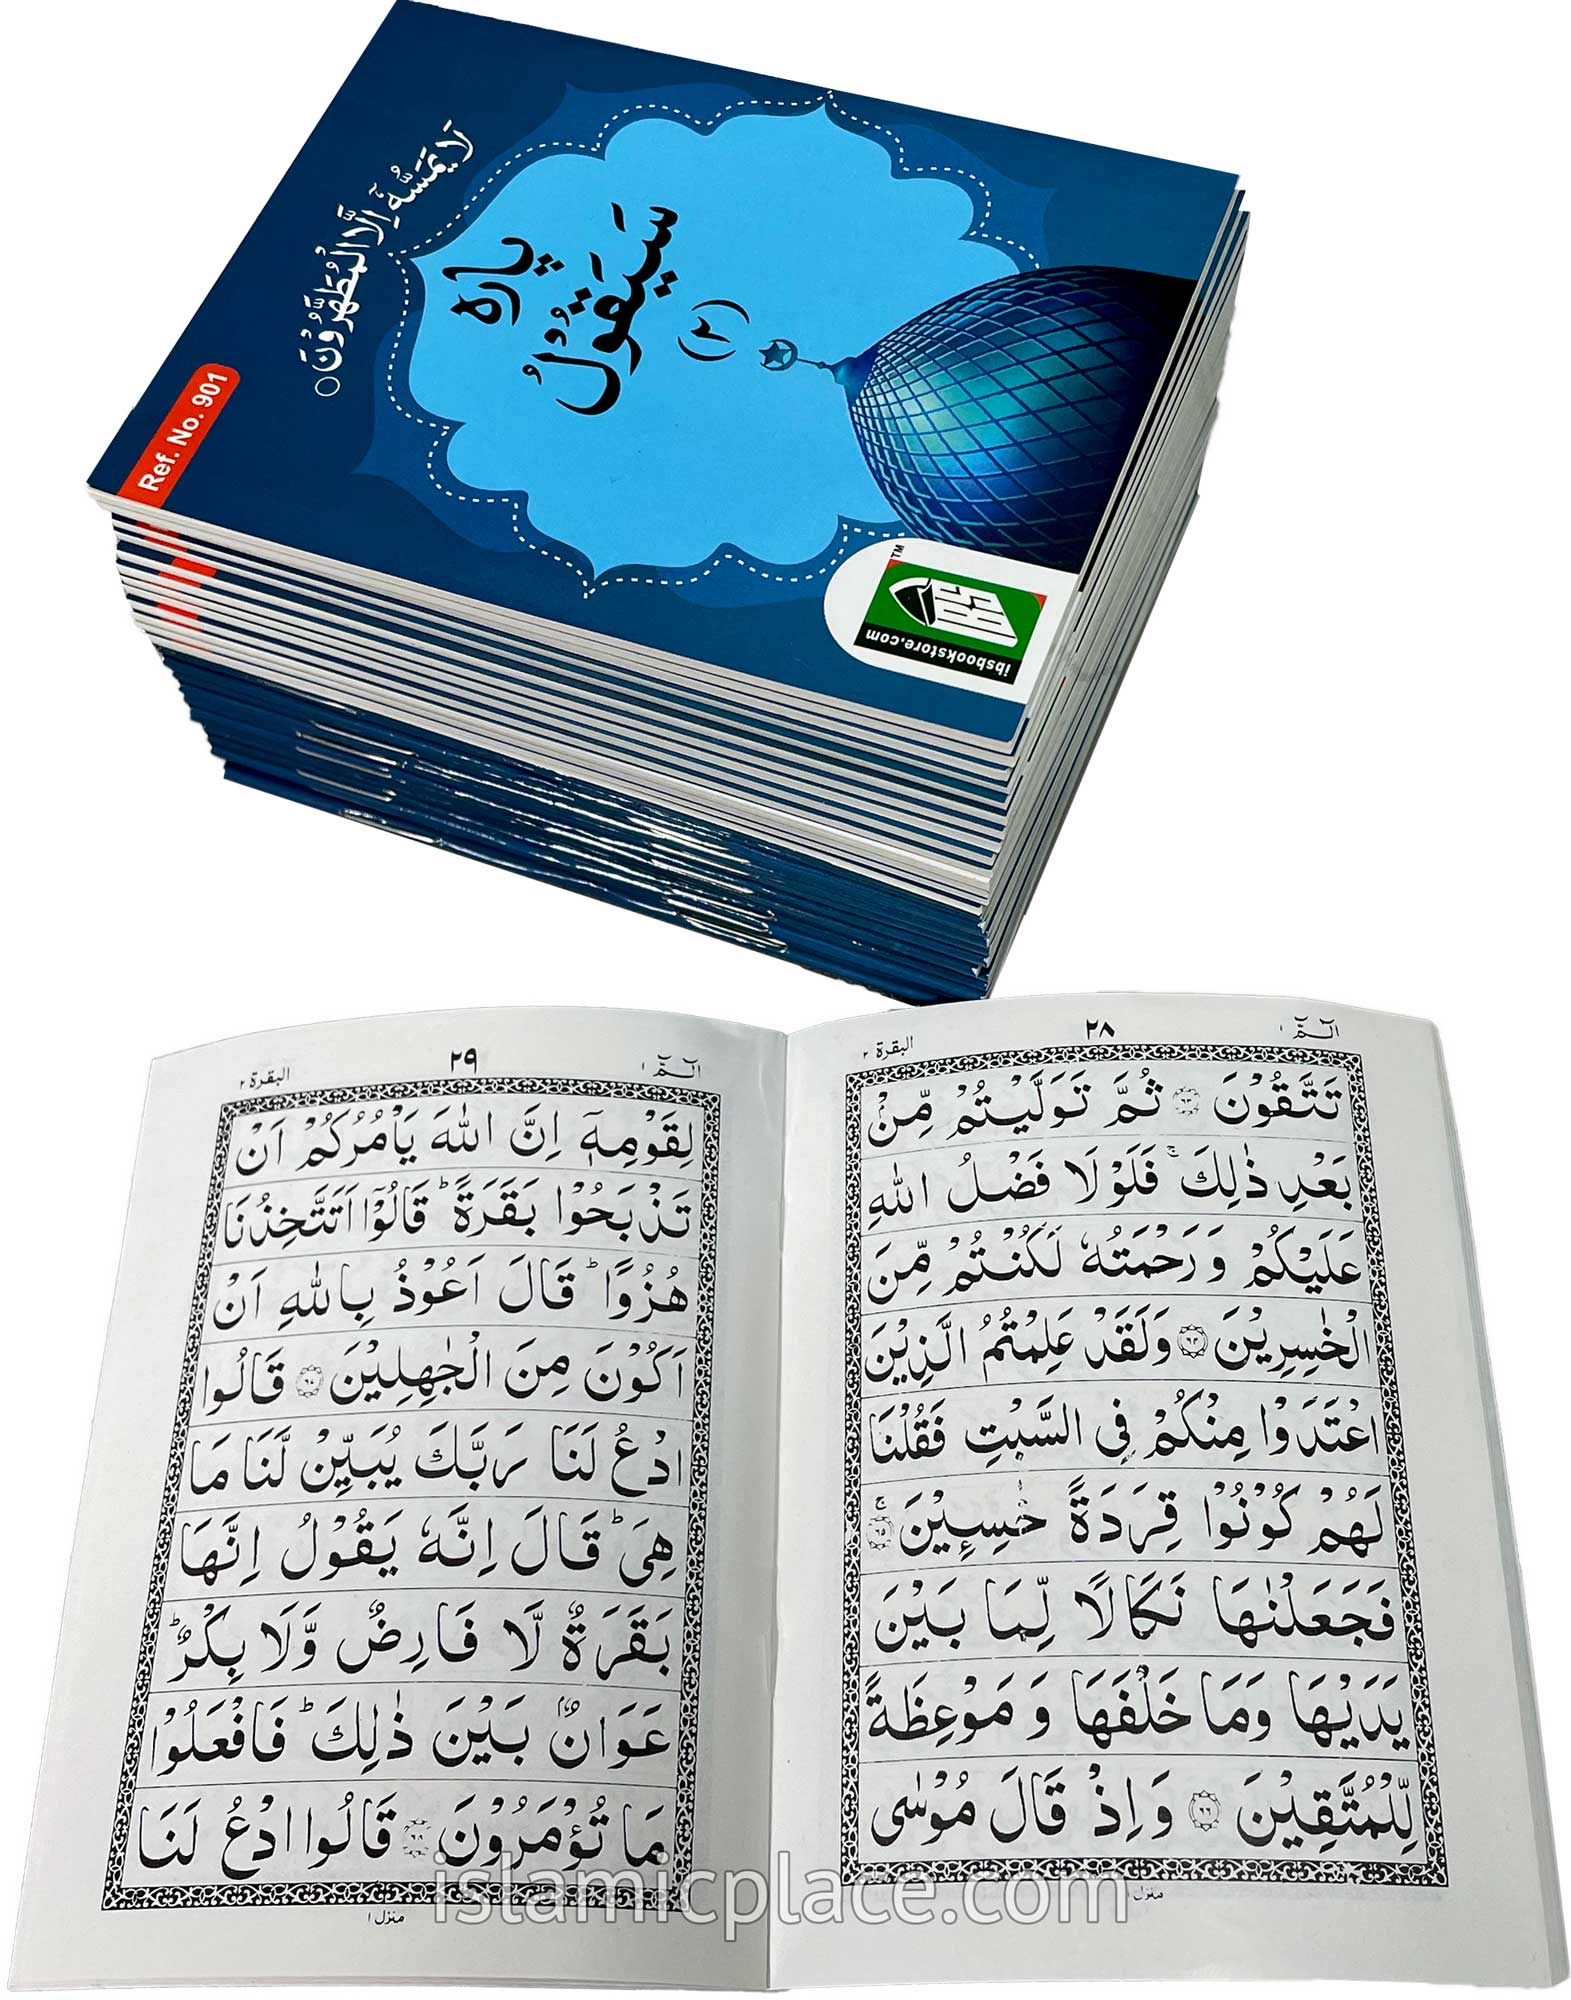 لَا يَمَسُّهٗۤ اِلَّا الْمُطَهَّرُوْنَ ○
پاره
سَيَقُوْلُ
(٢)
Ref. No. 901
ibsbookstore.com
TM
الٓمّٓ ١
٢٨
البقرة ٢
تَتَّقُوْنَ ۝٦٣ ثُمَّ تَوَلَّيْتُمْ مِّنْۢ
بَعْدِ ذٰلِكَ ۚ فَلَوْلَا فَضْلُ اللّٰهِ
عَلَيْكُمْ وَرَحْمَتُهٗ لَكُنْتُمْ مِّنَ
الْخٰسِرِيْنَ ۝٦٤ وَلَقَدْ عَلِمْتُمُ الَّذِيْنَ
اعْتَدَوْا مِنْكُمْ فِي السَّبْتِ فَقُلْنَا
لَهُمْ كُوْنُوْا قِرَدَةً خٰسِـِٕيْنَ ۝٦٥ ۚ
فَجَعَلْنٰهَا نَكَالًا لِّمَا بَيْنَ
يَدَيْهَا وَمَا خَلْفَهَا وَمَوْعِظَةً
لِّلْمُتَّقِيْنَ ۝٦٦ وَاِذْ قَالَ مُوْسٰى
منزل ١
الٓمّٓ ١
٢٩
البقرة ٢
لِقَوْمِهٖۤ اِنَّ اللّٰهَ يَاْمُرُكُمْ اَنْ
تَذْبَحُوْا بَقَرَةً ؕ قَالُوْۤا اَتَتَّخِذُنَا
هُزُوًا ؕ قَالَ اَعُوْذُ بِاللّٰهِ اَنْ
اَكُوْنَ مِنَ الْجٰهِلِيْنَ ۝٦٧ قَالُوا
ادْعُ لَنَا رَبَّكَ يُبَيِّنْ لَّنَا مَا
هِيَ ؕ قَالَ اِنَّهٗ يَقُوْلُ اِنَّهَا
بَقَرَةٌ لَّا فَارِضٌ وَّلَا بِكْرٌ ؕ
عَوَانٌۢ بَيْنَ ذٰلِكَ ؕ فَافْعَلُوْا
مَا تُؤْمَرُوْنَ ۝٦٨ قَالُوا ادْعُ لَنَا
منزل ١
islamicplace.com